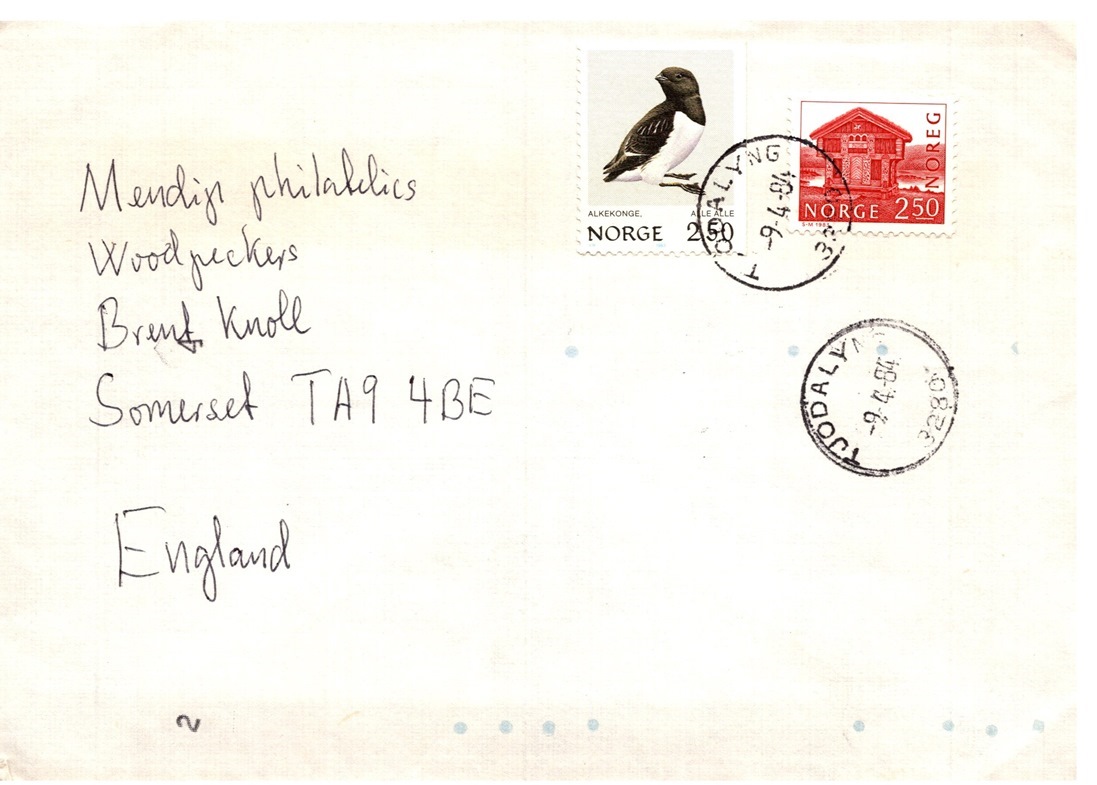 ALKEKONGE, ALLE ALLE
NORGE 2 50
NOREG
NORGE 2 50
TJØDALYNG
-9-4-84
Mendip philatelics
Woodpeckers
Brent Knoll
Somerset TA9 4BE
England
TJØDALYNG
-9-4-84
3280
2